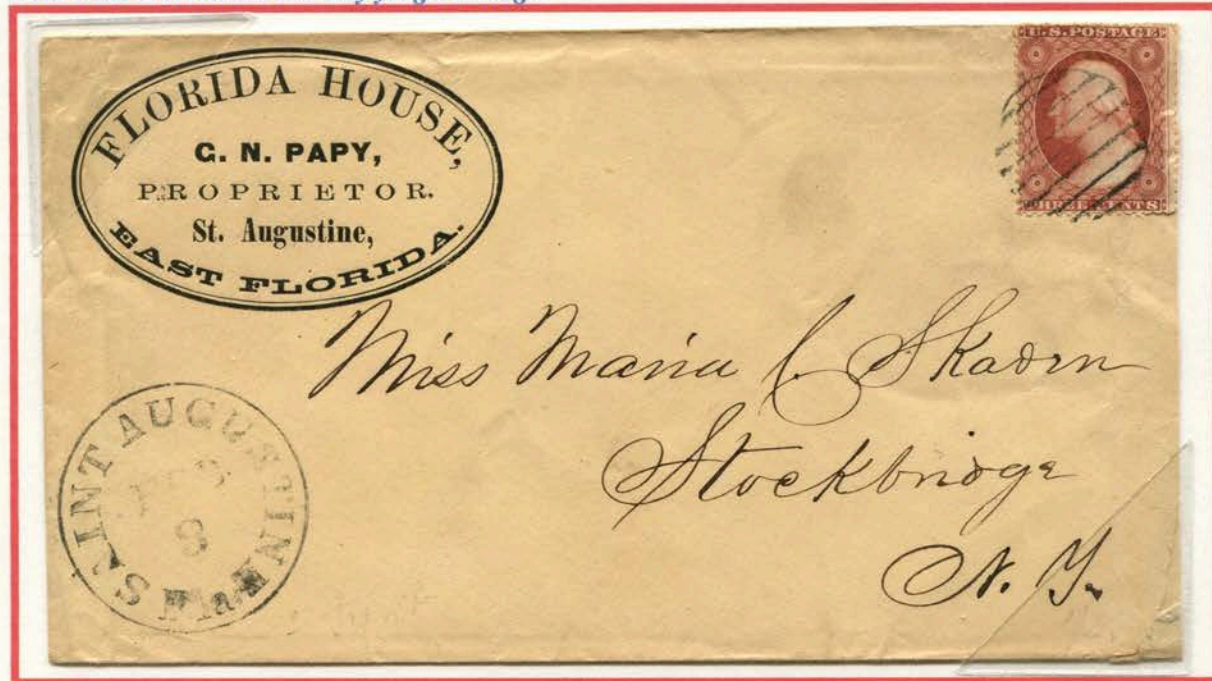 FLORIDA HOUSE,
G. N. PAPY,
PROPRIETOR.
St. Augustine,
EAST FLORIDA.
U.S. POSTAGE
THREE CENTS
Miss Maria C. Skadin
Stockbridge
N. Y.
SAINT AUGUSTINE
8
Fla